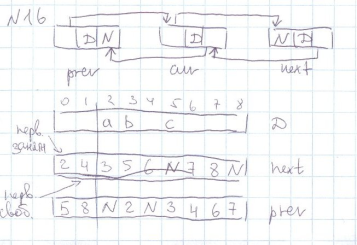 N16
D N D N D
prev cur next
0 1 2 3 4 5 6 7 8
a b c D
перв. занят
2 4 3 5 6 N 7 8 N next
перв. своб.
5 8 N 2 N 3 4 6 7 prev